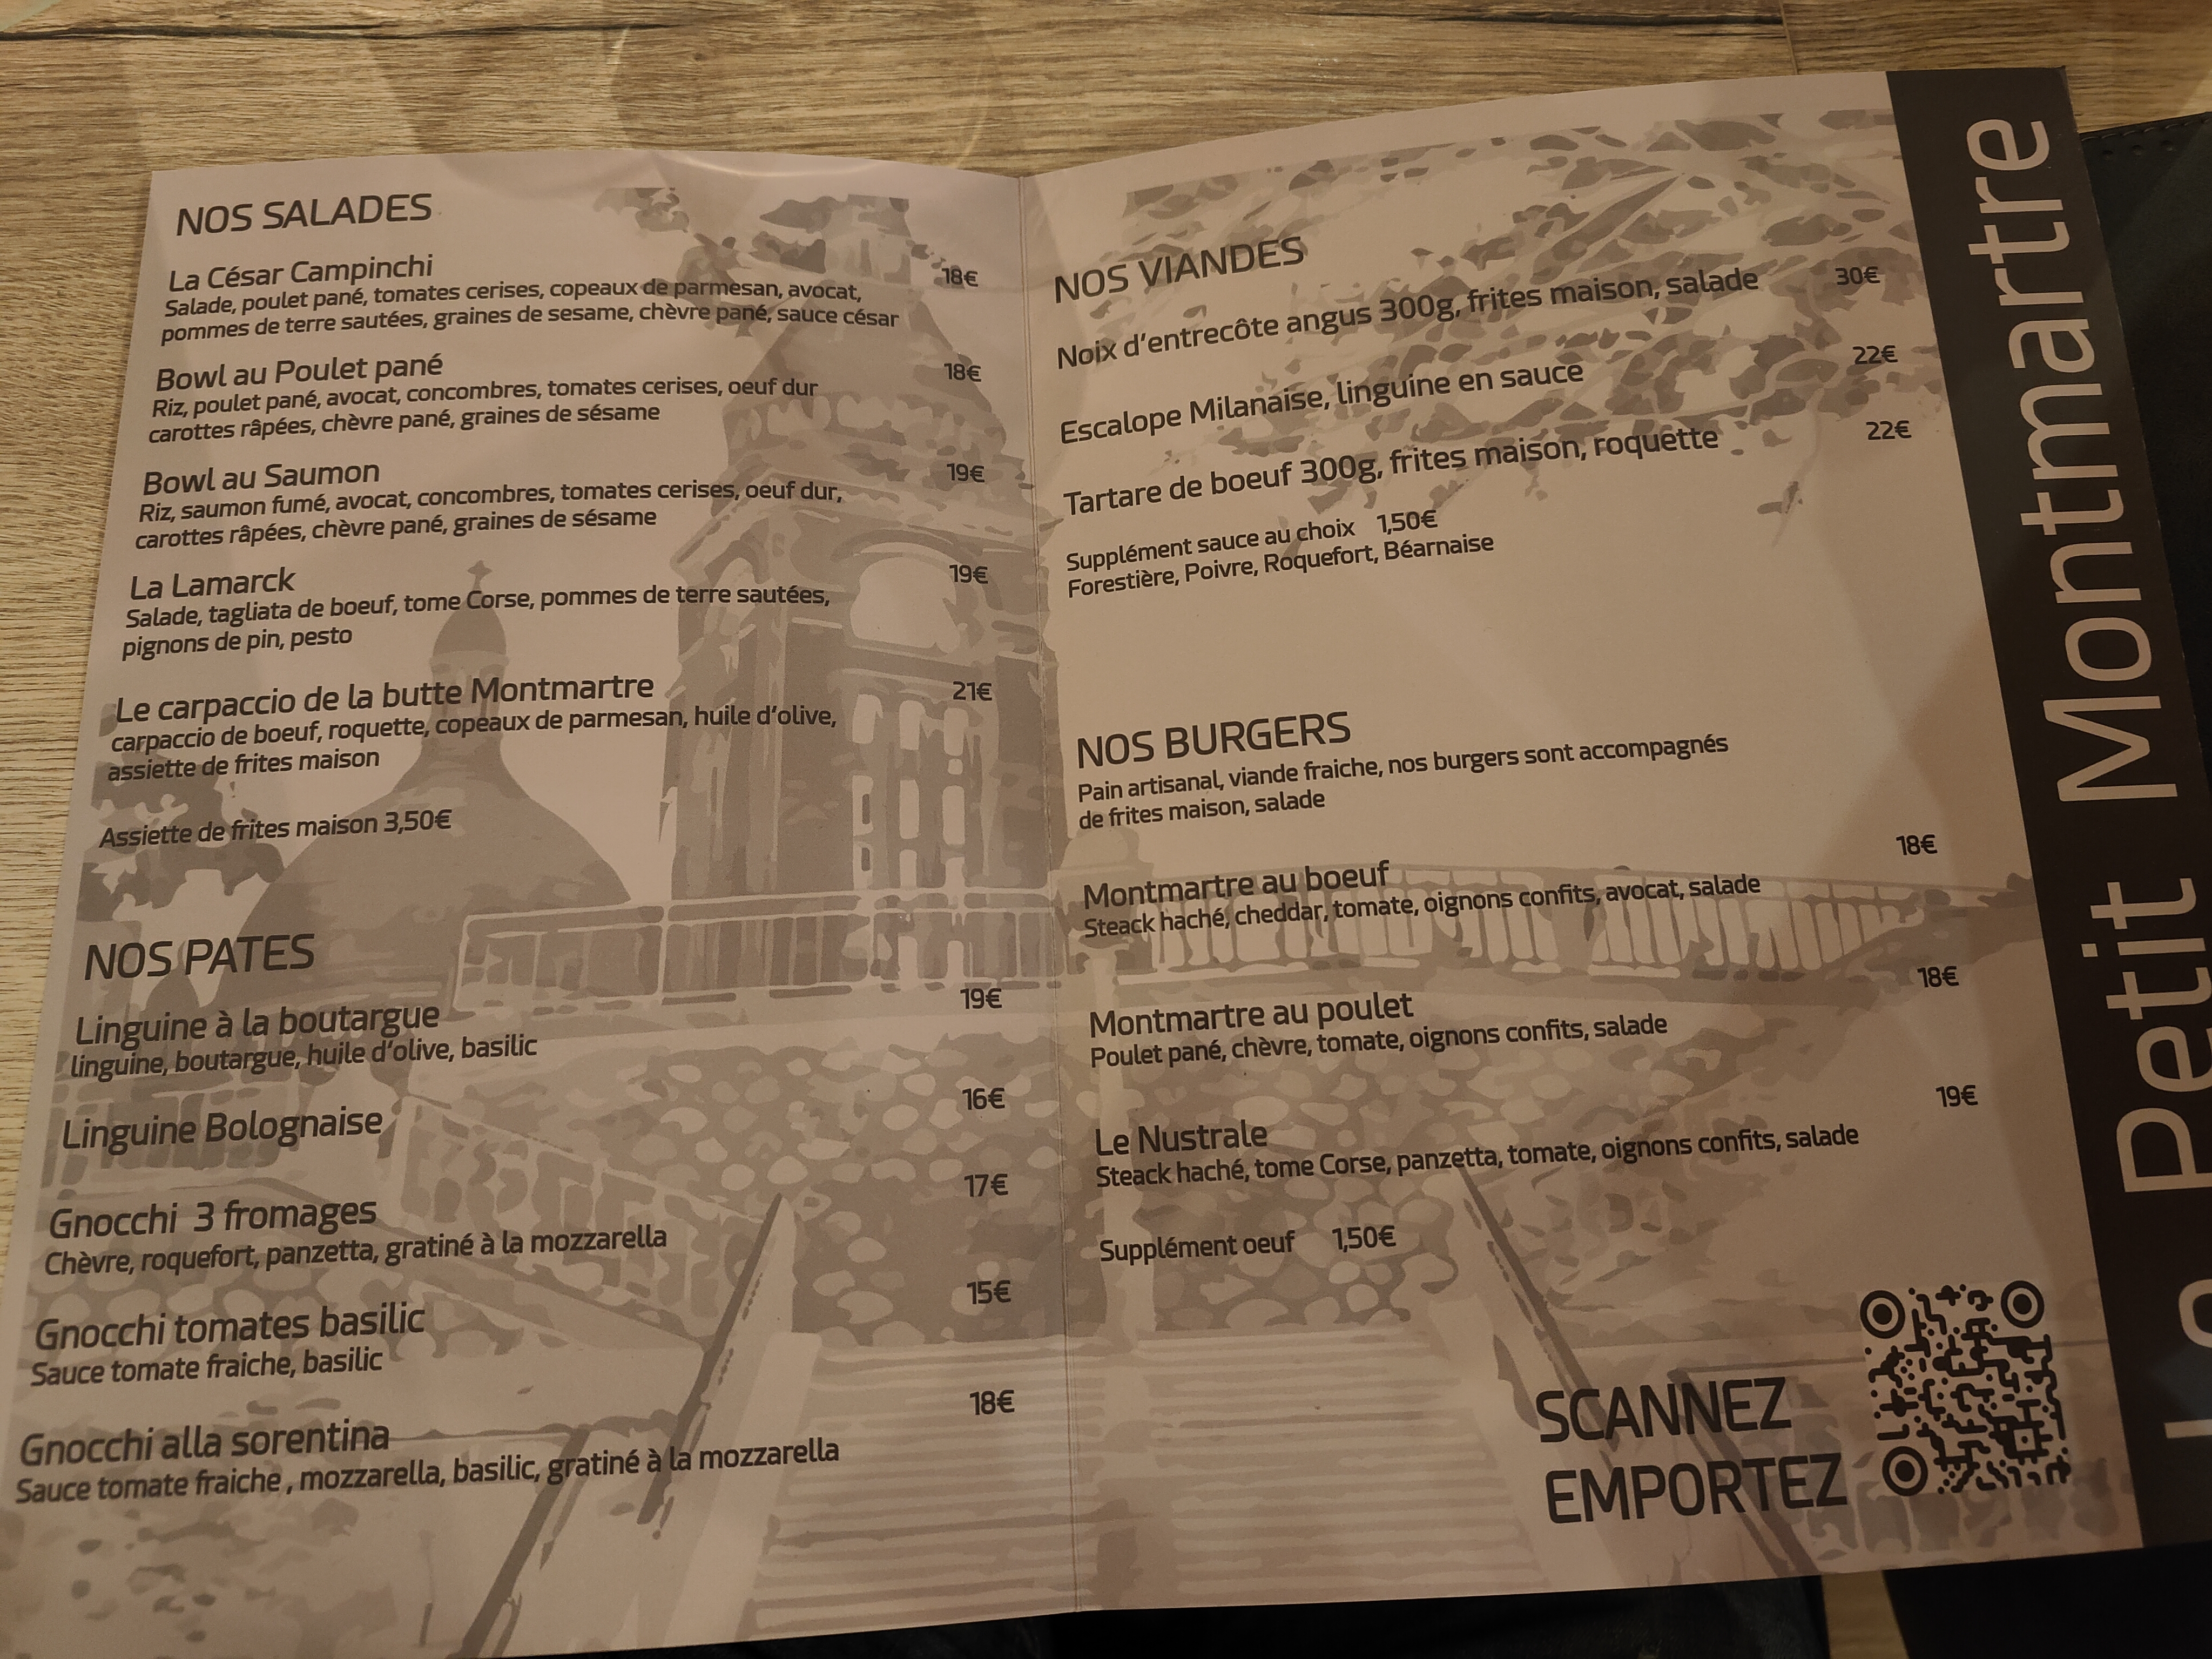 NOS SALADES
La César Campinchi 18€
Salade, poulet pané, tomates cerises, copeaux de parmesan, avocat,
pommes de terre sautées, graines de sesame, chèvre pané, sauce césar
Bowl au Poulet pané 18€
Riz, poulet pané, avocat, concombres, tomates cerises, oeuf dur
carottes râpées, chèvre pané, graines de sésame
Bowl au Saumon 19€
Riz, saumon fumé, avocat, concombres, tomates cerises, oeuf dur,
carottes râpées, chèvre pané, graines de sésame
La Lamarck 19€
Salade, tagliata de boeuf, tome Corse, pommes de terre sautées,
pignons de pin, pesto
Le carpaccio de la butte Montmartre 21€
carpaccio de boeuf, roquette, copeaux de parmesan, huile d'olive,
assiette de frites maison
Assiette de frites maison 3,50€
NOS PATES
Linguine à la boutargue 19€
linguine, boutargue, huile d'olive, basilic
Linguine Bolognaise 16€
Gnocchi 3 fromages 17€
Chèvre, roquefort, panzetta, gratiné à la mozzarella
Gnocchi tomates basilic 15€
Sauce tomate fraiche, basilic
Gnocchi alla sorentina 18€
Sauce tomate fraiche , mozzarella, basilic, gratiné à la mozzarella
NOS VIANDES
Noix d'entrecôte angus 300g, frites maison, salade 30€
Escalope Milanaise, linguine en sauce 22€
Tartare de boeuf 300g, frites maison, roquette 22€
Supplément sauce au choix 1,50€
Forestière, Poivre, Roquefort, Béarnaise
NOS BURGERS
Pain artisanal, viande fraiche, nos burgers sont accompagnés
de frites maison, salade
Montmartre au boeuf 18€
Steack haché, cheddar, tomate, oignons confits, avocat, salade
Montmartre au poulet 18€
Poulet pané, chèvre, tomate, oignons confits, salade
Le Nustrale 19€
Steack haché, tome Corse, panzetta, tomate, oignons confits, salade
Supplément oeuf 1,50€
SCANNEZ
EMPORTEZ
Petit Montmartre